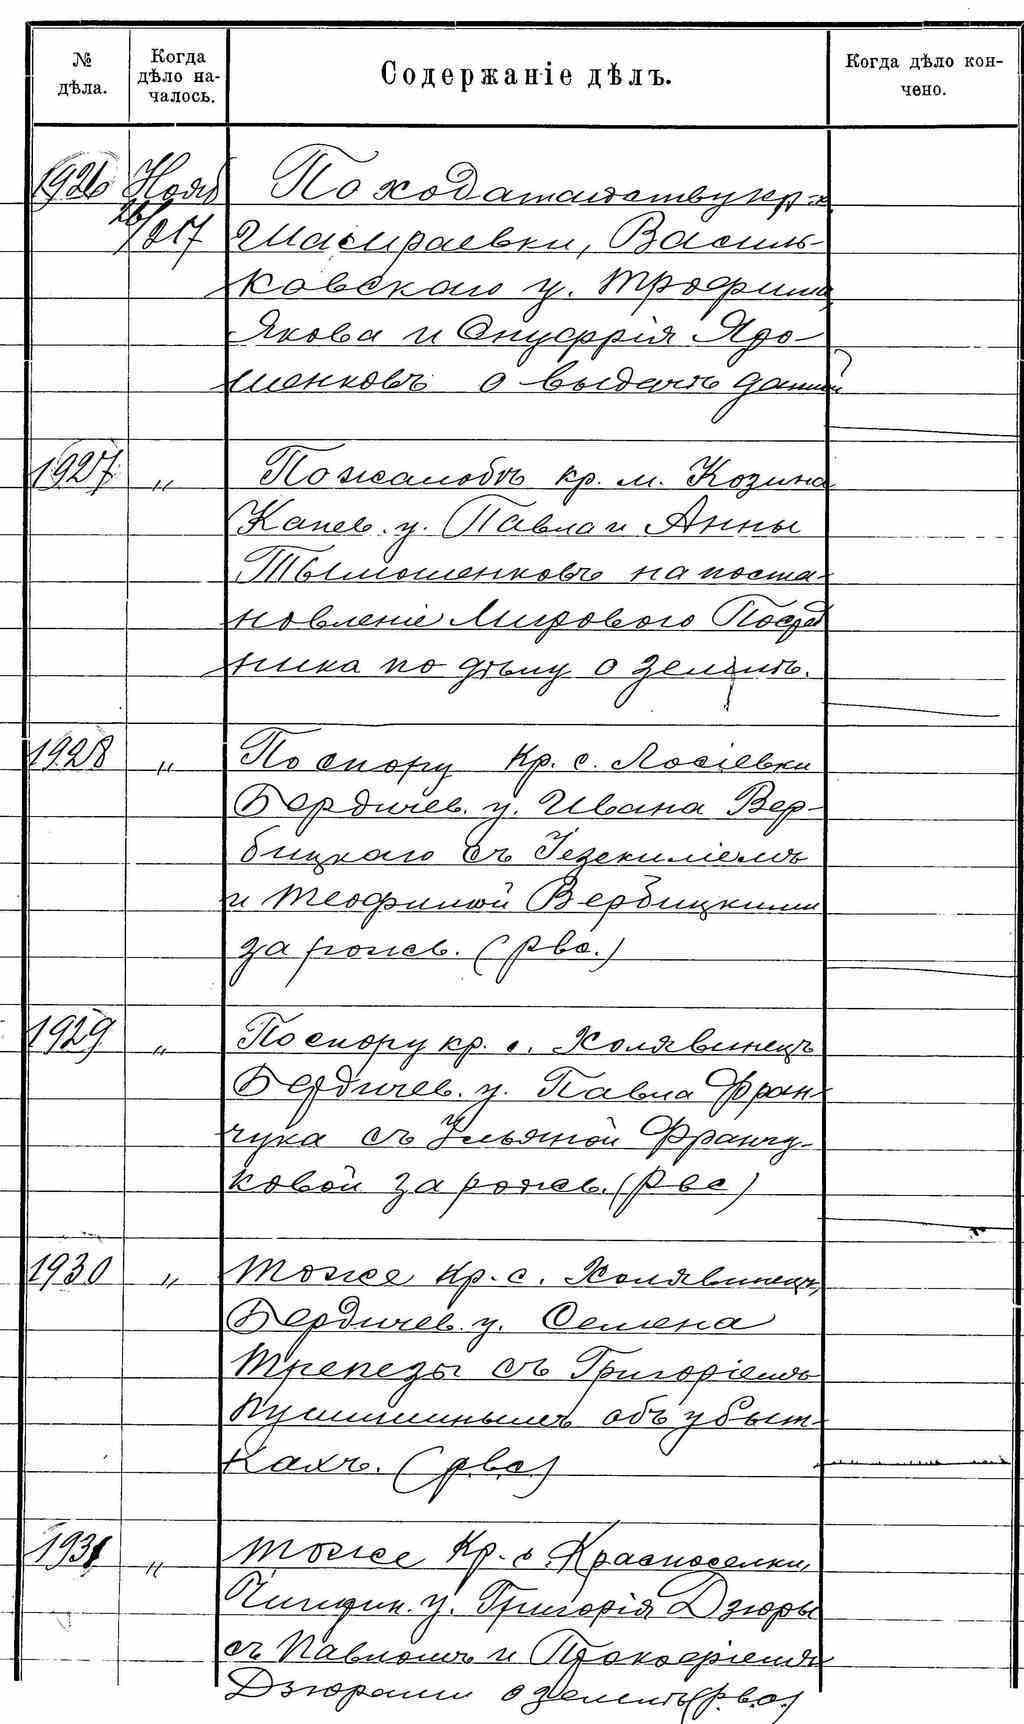 № дѣла.
Когда дѣло на-чалось.
Содержаніе дѣлъ.
Когда дѣло кон-чено.
1926 Нояб По ходатайству кр-н
26/217 Шамраевки, Василь-
ковскаго у. Трофима,
Якова и Онуфрія Ядо-
менковъ о выдачѣ данной
1927 „ По жалобѣ кр. м. Козина
Канев. у. Павла и Анны
Тымошенковъ на поста-
новленіе Мирового Посред
ника по дѣлу о землѣ.
1928 „ По спору кр. с. Лосіевки
Бердичев. у. Ивана Вер-
бицкаго съ Іезекиліемъ
и Теофилой Вербицкими
за рожь. (рво.)
1929 „ По спору кр. с. Холявинецъ
Бердичев. у. Павла Фран-
чука съ Ульяной Франчу-
ковой за рожь. (Рвс)
1930 „ Тоже кр. с. Холявинецъ,
Бердичев. у. Семена
Трепезы съ Григоріемъ
обѣ убыт-
кахъ. (р.в.с.)
1931 „ Тоже Кр. с. Красноселки,
Чигирин. у. Григорія Дзюры
съ Павломъ и Прокофіемъ
Дзюрами о землѣ (р.в.о.)